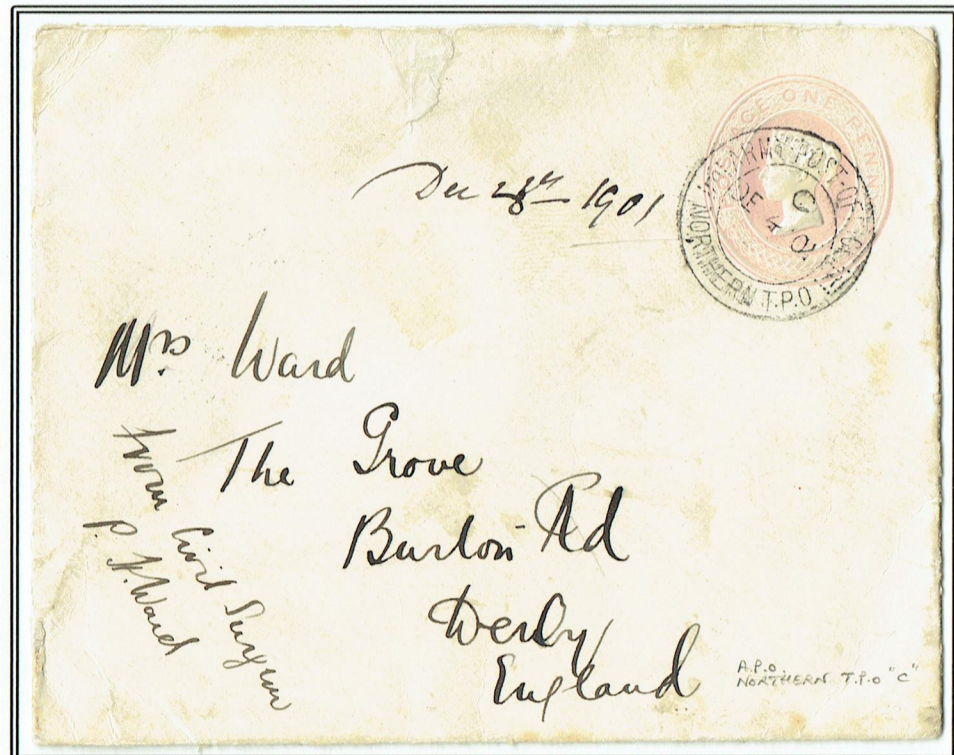 POSTAGE ONE PENNY
ARMY POST OFFICE
C
DE 4
01
NORTHERN T.P.O
Dec 28th 1901
Mrs Ward
The Grove
Burton Rd
Derby
England
from Civil Surgeon
P. H. Ward
A.P.O.
NORTHERN T.P.O "C"